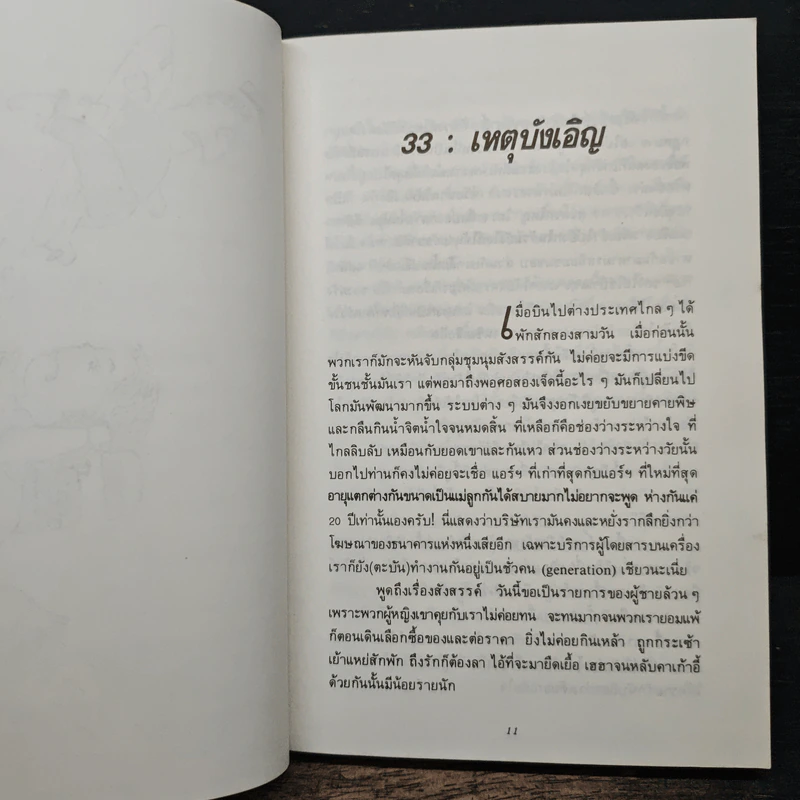 33 : เหตุบังเอิญ
เมื่อบินไปต่างประเทศไกล ๆ ได้
พักสักสองสามวัน เมื่อก่อนนั้น
พวกเราก็มักจะหันจับกลุ่มชุมนุมสังสรรค์กัน ไม่ค่อยจะมีการแบ่งขีด
ขั้นชนชั้นมันเรา แต่พอมาถึงพอศอสองเจ็ดนี้อะไร ๆ มันก็เปลี่ยนไป
โลกมันพัฒนามากขึ้น ระบบต่าง ๆ มันจึงงอกเงยขยับขยายคายพิษ
และกลืนกินน้ำจิตน้ำใจจนหมดสิ้น ที่เหลือก็คือช่องว่างระหว่างใจ ที่
ไกลลิบลับ เหมือนกับยอดเขาและก้นเหว ส่วนช่องว่างระหว่างวัยนั้น
บอกไปท่านก็คงไม่ค่อยจะเชื่อ แอร์ฯ ที่เก่าที่สุดกับแอร์ฯ ที่ใหม่ที่สุด
อายุแตกต่างกันขนาดเป็นแม่ลูกกันได้สบายมากไม่อยากจะพูด ห่างกันแค่
20 ปีเท่านั้นเองครับ! นี่แสดงว่าบริษัทเรามั่นคงและหยั่งรากลึกยิ่งกว่า
โฆษณาของธนาคารแห่งหนึ่งเสียอีก เฉพาะบริการผู้โดยสารบนเครื่อง
เราก็ยัง(ตะบัน)ทำงานกันอยู่เป็นชั่วคน (generation) เชียวนะเนี่ย
พูดถึงเรื่องสังสรรค์ วันนี้ขอเป็นรายการของผู้ชายล้วน ๆ
เพราะพวกผู้หญิงเขาคุยกับเราไม่ค่อยทน จะทนมากจนพวกเรายอมแพ้
ก็ตอนเดินเลือกซื้อของและต่อราคา ยิ่งไม่ค่อยกินเหล้า ถูกกระเซ้า
เย้าแหย่สักพัก ถึงรักก็ต้องลา ไอ้ที่จะมายืดเยื้อ เฮฮาจนหลับคาเก้าอี้
ด้วยกันนั้นมีน้อยรายนัก
11